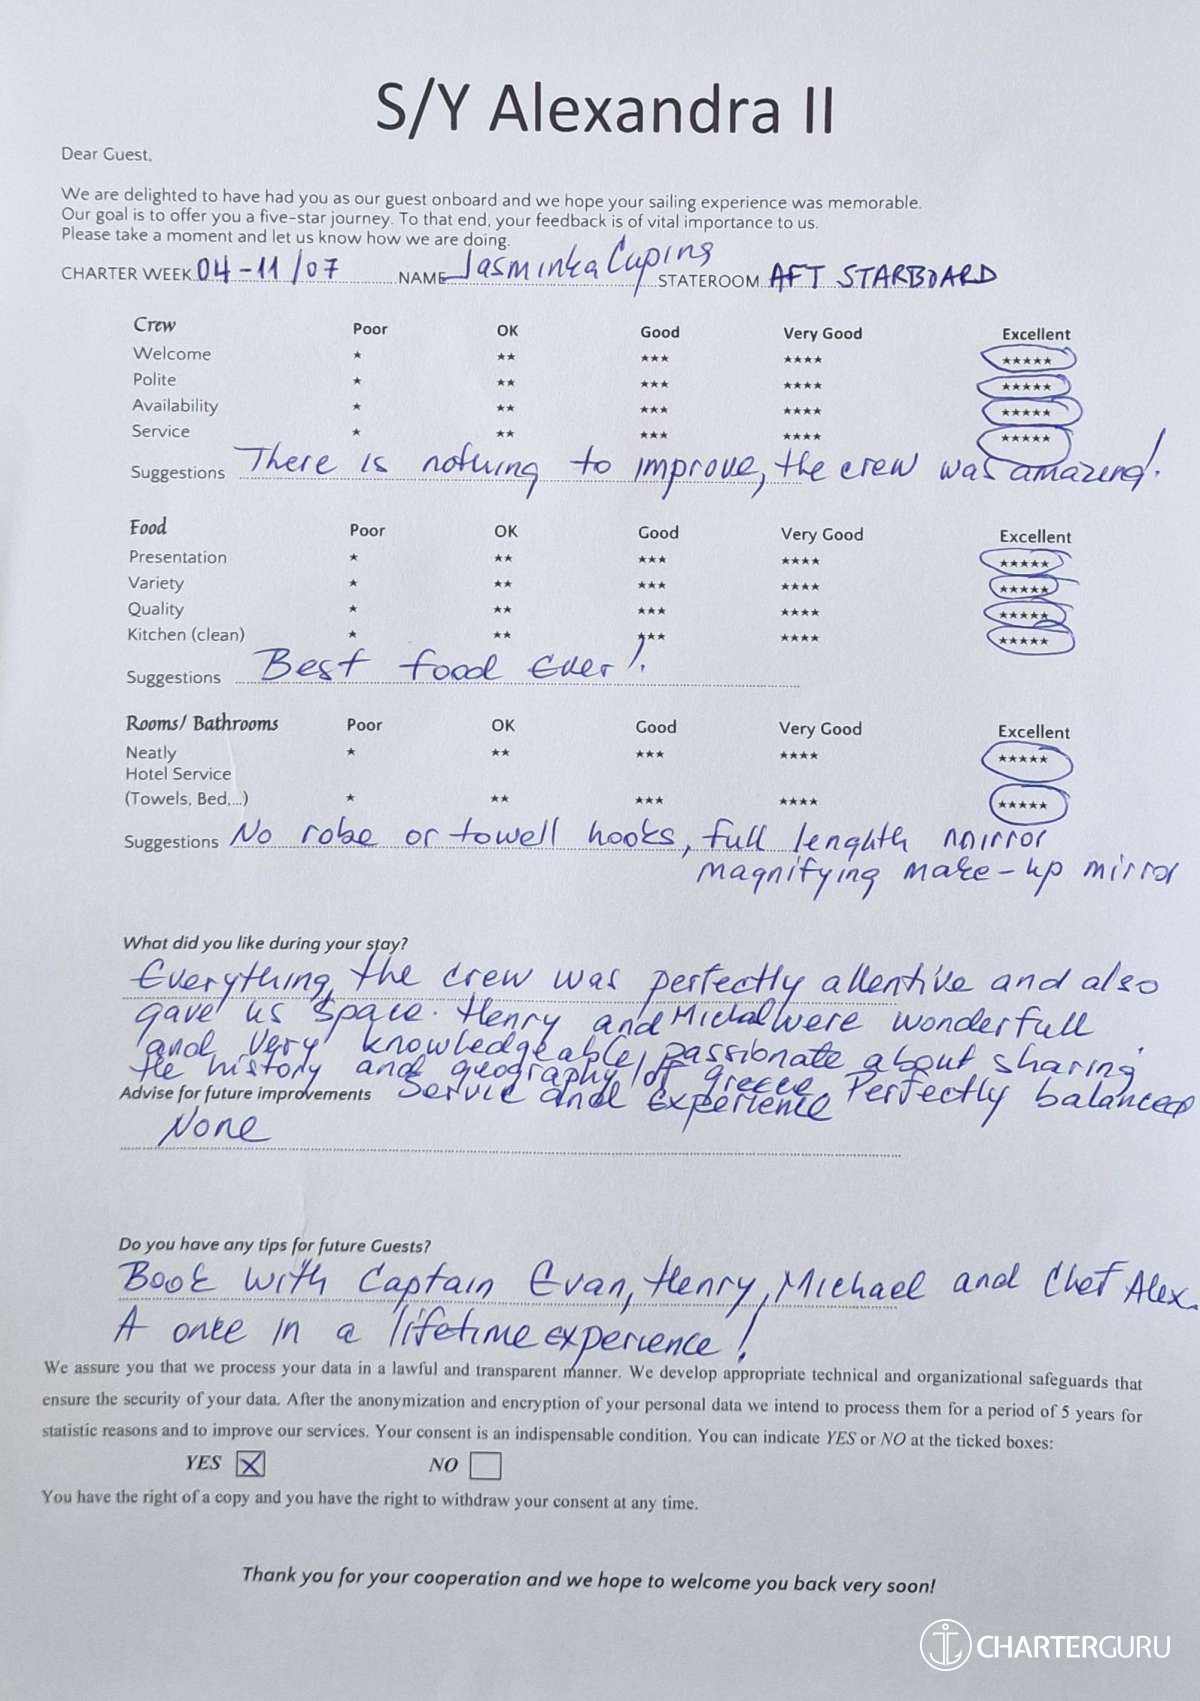 S/Y Alexandra II
Dear Guest,
We are delighted to have had you as our guest onboard and we hope your sailing experience was memorable.
Our goal is to offer you a five-star journey. To that end, your feedback is of vital importance to us.
Please take a moment and let us know how we are doing.
CHARTER WEEK 04-11/07 NAME Jasminka Cuping STATEROOM AFT STARBOARD
Crew Poor OK Good Very Good Excellent
Welcome ★ ★★ ★★★ ★★★★ ★★★★★
Polite ★ ★★ ★★★ ★★★★ ★★★★★
Availability ★ ★★ ★★★ ★★★★ ★★★★★
Service ★ ★★ ★★★ ★★★★ ★★★★★
Suggestions There is nothing to improve, the crew was amazing!
Food Poor OK Good Very Good Excellent
Presentation ★ ★★ ★★★ ★★★★ ★★★★★
Variety ★ ★★ ★★★ ★★★★ ★★★★★
Quality ★ ★★ ★★★ ★★★★ ★★★★★
Kitchen (clean) ★ ★★ ★★★ ★★★★ ★★★★★
Suggestions Best food Ever!
Rooms/ Bathrooms Poor OK Good Very Good Excellent
Neatly ★ ★★ ★★★ ★★★★ ★★★★★
Hotel Service
(Towels, Bed,...) ★ ★★ ★★★ ★★★★ ★★★★★
Suggestions No robe or towell hooks, full lenghth mirror
magnifying make-up mirror
What did you like during your stay?
Everything, the crew was perfectly attentive and also
gave us space. Henry and Michal were wonderfull
and very knowledgeable, passionate about sharing
the history and geography of greece Perfectly balanced
Service and Experience
Advise for future improvements
None
Do you have any tips for future Guests?
Book with Captain Evan, Henry, Michael and Chef Alex.
A once in a lifetime experience!
We assure you that we process your data in a lawful and transparent manner. We develop appropriate technical and organizational safeguards that
ensure the security of your data. After the anonymization and encryption of your personal data we intend to process them for a period of 5 years for
statistic reasons and to improve our services. Your consent is an indispensable condition. You can indicate YES or NO at the ticked boxes:
YES X NO
You have the right of a copy and you have the right to withdraw your consent at any time.
Thank you for your cooperation and we hope to welcome you back very soon!
CHARTERGURU